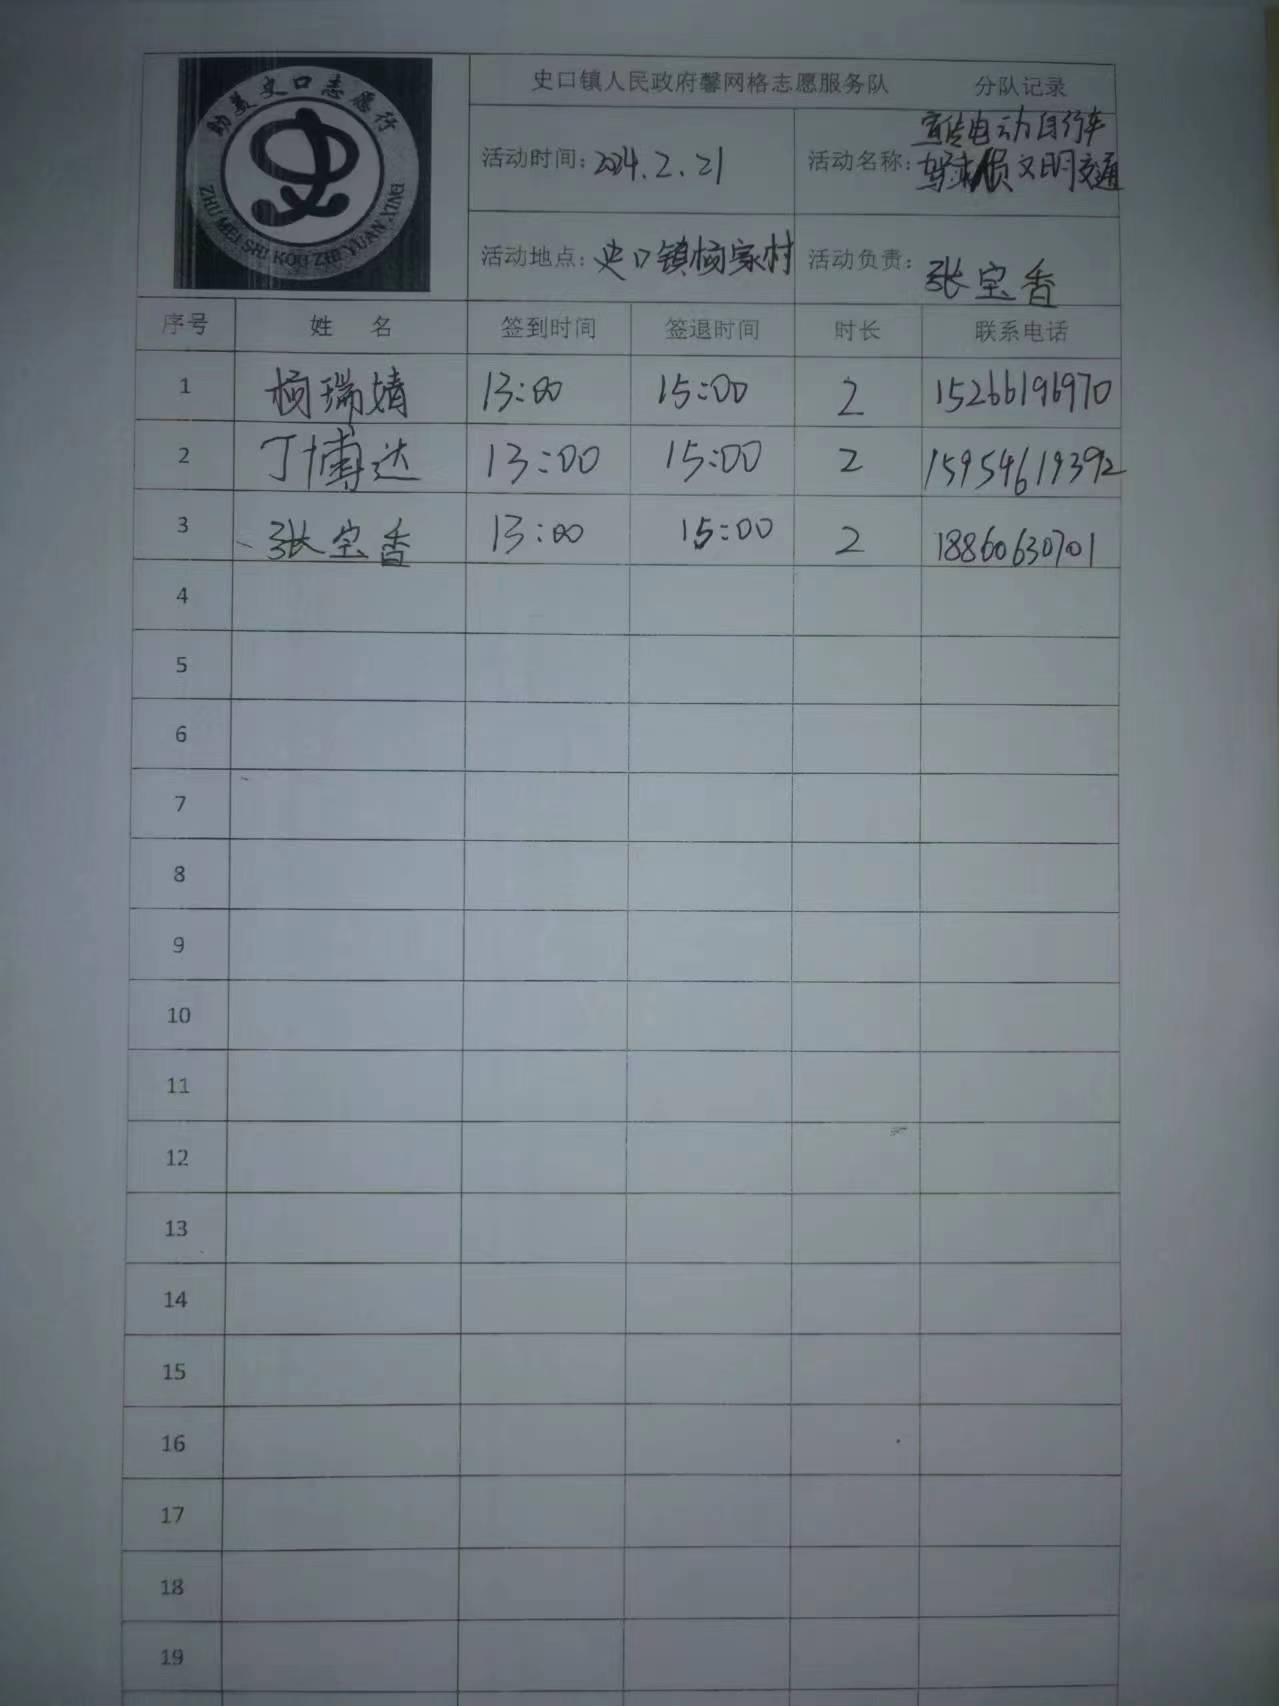 助美史口志愿行
ZHU MEI SHI KOU ZHI YUAN XING
史口镇人民政府馨网格志愿服务队 分队记录
活动时间：2024.2.21
活动名称：宣传电动自行车
文明交通
活动地点：史口镇杨家村
活动负责：张宝香
序号 姓 名 签到时间 签退时间 时长 联系电话
1 杨瑞婧 13:00 15:00 2 15266196970
2 丁博达 13:00 15:00 2 15954619392
3 张宝香 13:00 15:00 2 18860630701
4
5
6
7
8
9
10
11
12
13
14
15
16
17
18
19